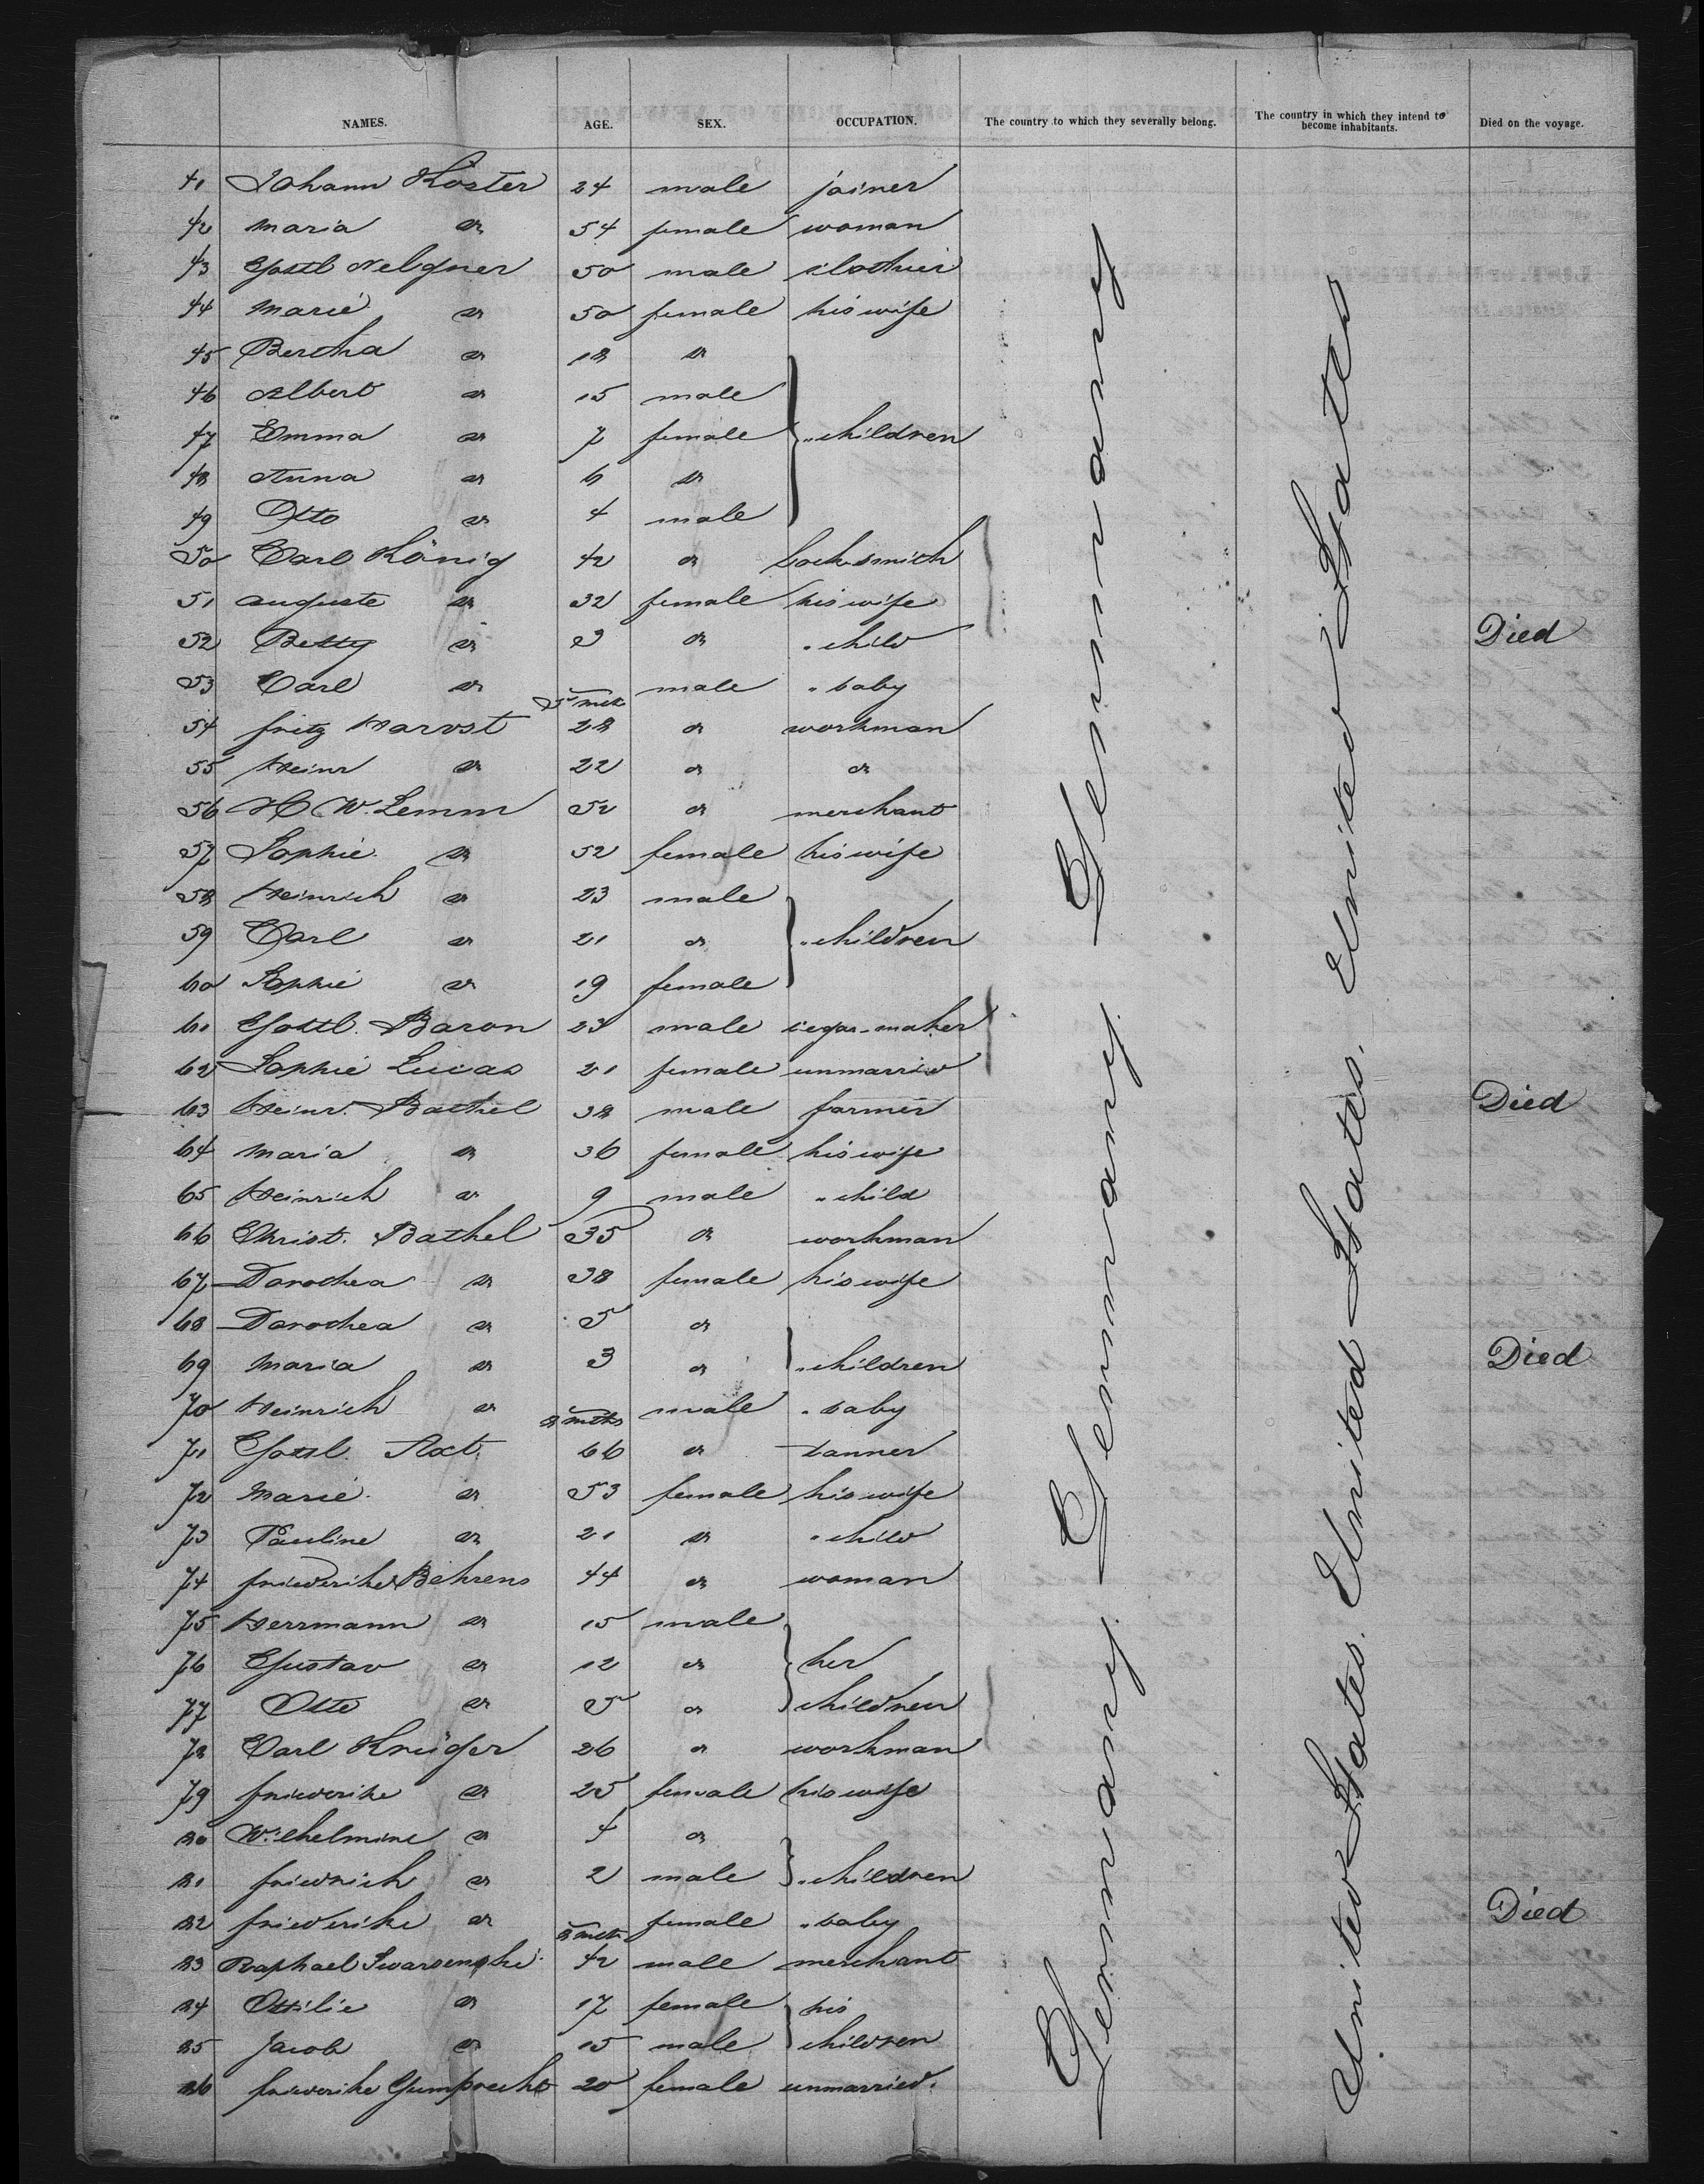 NAMES. AGE. SEX. OCCUPATION. The country to which they severally belong. The country in which they intend to become inhabitants. Died on the voyage.
41 Johann Köster 24 male joiner
42 Maria do 54 female woman
43 Gottl 50 male clothier
44 Marie do 50 female his wife
45 Bertha do 18 do
46 Albert do 15 male
47 Emma do 7 female " children
48 Anna do 6 do
49 Otto do 4 male
50 Carl König 42 do Locksmith
51 Auguste do 32 female his wife
52 Betty do 3 do " child Died
53 Carl do 5 mths male " baby
54 Fritz Harvst 28 do workman
55 Heinr do 22 do do
56 H. W. Lemm 52 do merchant
57 Sophie do 52 female his wife
58 Heinrich do 23 male
59 Carl do 21 do " children
60 Sophie do 19 female
61 Gottl. Baron 23 male cegar-maker
62 Sophie Lucas 21 female unmarried
63 Heinr. Bathel 38 male farmer Died
64 Maria do 36 female his wife
65 Heinrich do 9 male " child
66 Christ. Bathel 35 do workman
67 Dorothea do 38 female his wife
68 Dorothea do 5 do
69 Maria do 3 do " children Died
70 Heinrich do 8 mths male " baby
71 Gottl. Axt 66 do tanner
72 Marie do 53 female his wife
73 Pauline do 21 do " child
74 Friederike Behrens 44 do woman
75 Herrmann do 15 male
76 Gustav do 12 do her
77 Otto do 5 do children
78 Carl Krüger 26 do workman
79 Friederike do 25 female his wife
80 Wilhelmine do 4 do
81 Friedrich do 2 male " children
82 Friederike do 8 mths female " baby Died
83 Raphael Swarsenske 42 male merchant
84 Ottilie do 17 female his
85 Jacob do 15 male children
86 Friederike Gumprecht 20 female unmarried.
Germany Germany Germany. Germany.
United States. United States. United States